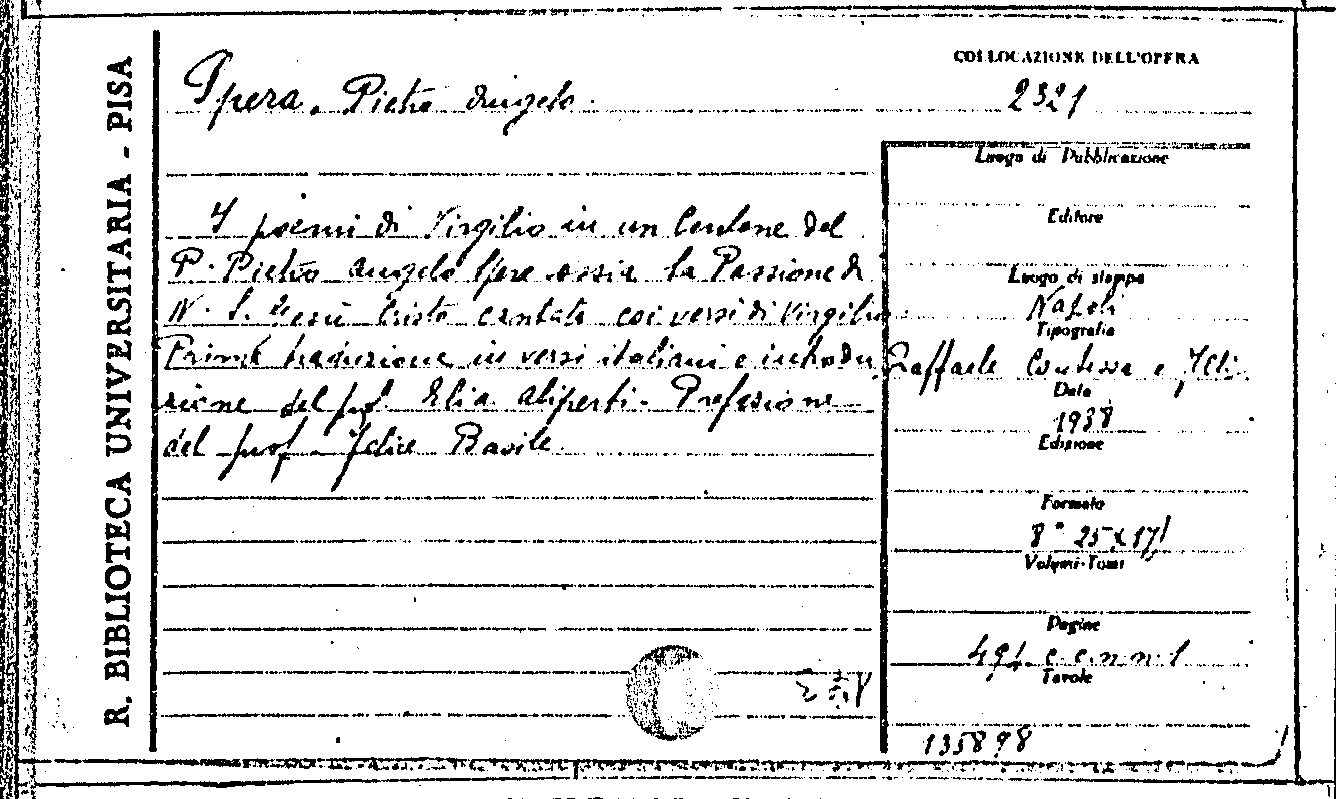 R. BIBLIOTECA UNIVERSITARIA - PISA
COLLOCAZIONE DELL'OPERA
Spera, Pietro Angelo.
2321
I poemi di Virgilio in un Centone del
P. Pietro Angelo Spera ossia la Passione di
N. S. Gesù Cristo cantata coi versi di Virgilio.
Prima traduzione in versi italiani e introdu
zione del prof. Elia Aliperti. Prefazione
del prof. Felice Basile.
Luogo di Pubblicazione
Editore
Luogo di stampa
Napoli
Tipografia
Raffaele Contessa e
Data
1938
Edizione
Formato
8° 25x17
Volumi-Tomi
Pagine
c. c. n. n. 1
Tavole
135898